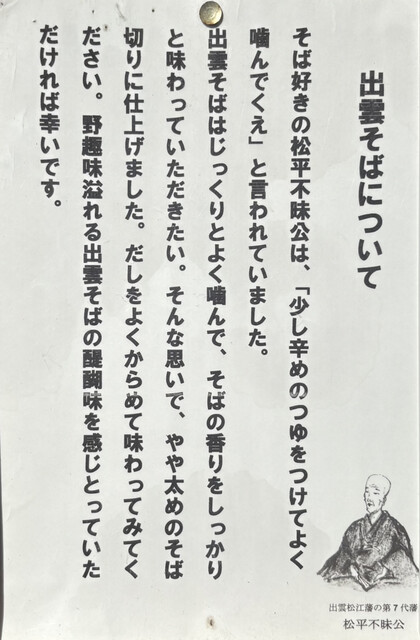 出雲そばについて
そば好きの松平不昧公は、「少し辛めのつゆをつけてよく
噛んでくえ」と言われていました。
出雲そばはじっくりとよく噛んで、そばの香りをしっかり
と味わっていただきたい。そんな思いで、やや太めのそば
切りに仕上げました。だしをよくからめて味わってみてく
ださい。野趣味溢れる出雲そばの醍醐味を感じとっていた
だければ幸いです。
出雲松江藩の第7代藩
松平不昧公